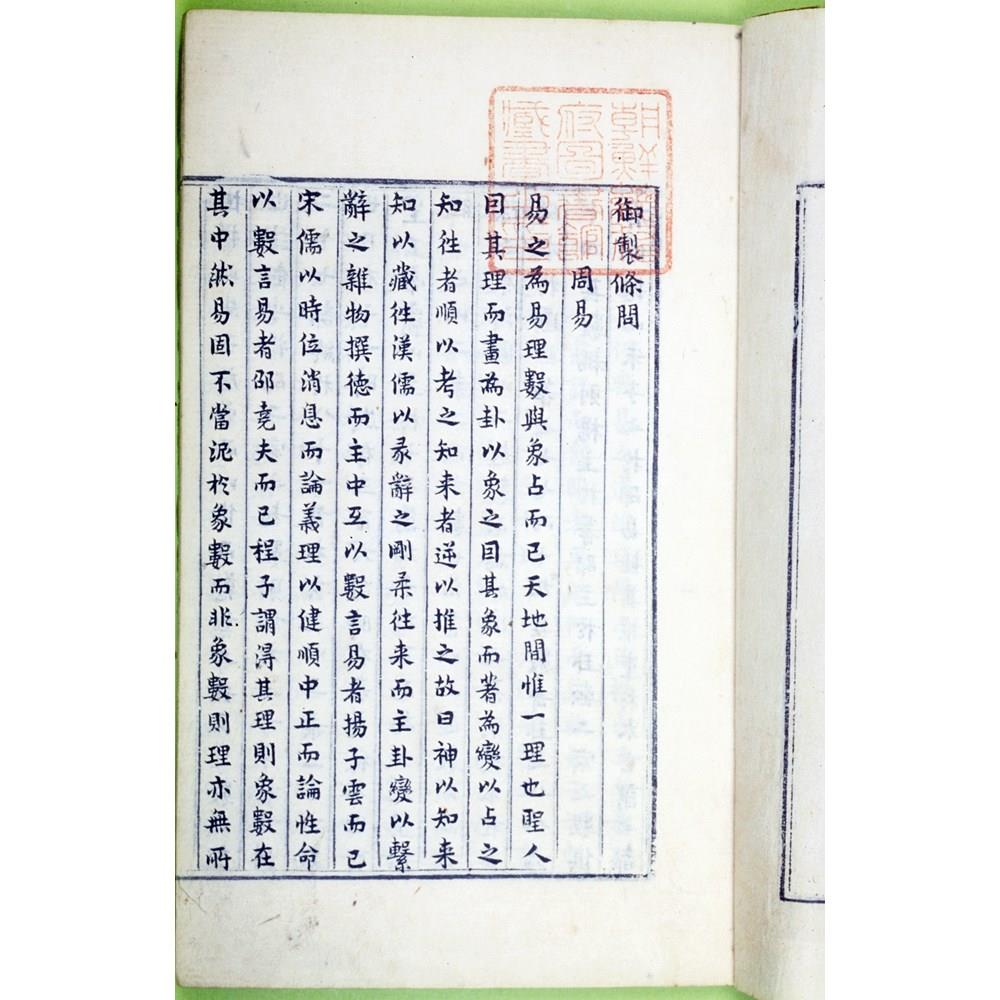 御製條問
周易
易之為易理數與象占而已天地間惟一理也聖人
因其理而畫為卦以象之因其象而著為變以占之
知徃者順以考之知来者逆以推之故曰神以知来
知以藏徃漢儒以彖辭之剛柔徃来而主卦變以繫
辭之雜物撰德而主中互以數言易者揚子雲而已
宋儒以時位消息而論義理以健順中正而論性命
以數言易者邵堯夫而已程子謂淂其理則象數在
其中然易固不當泥於象數而非象數則理亦無所
朝鮮總督
府圖書館
藏書之印